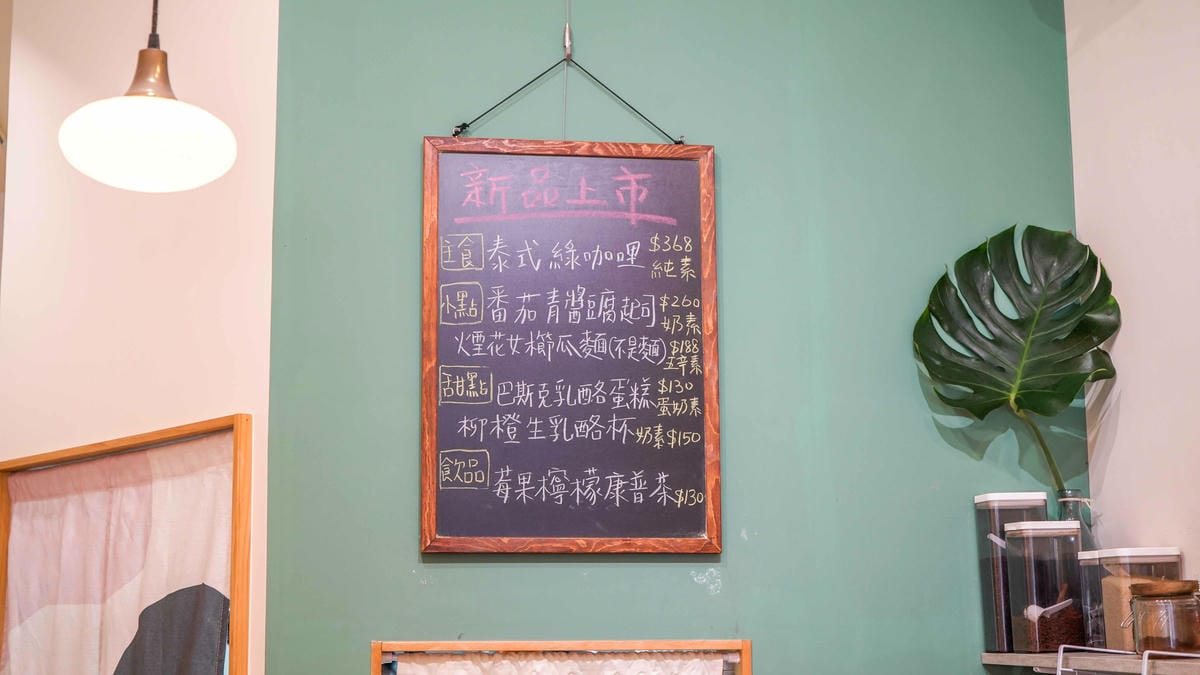 新品上市
主食 泰式綠咖哩 $368
純素
小點 番茄青醬豆腐起司 $260
奶素
煙花女櫛瓜麵(不是麵) $188
五辛素
甜點 巴斯克乳酪蛋糕 $130
蛋奶素
柳橙生乳酪杯 奶素 $150
飲品 莓果檸檬康普茶 $130